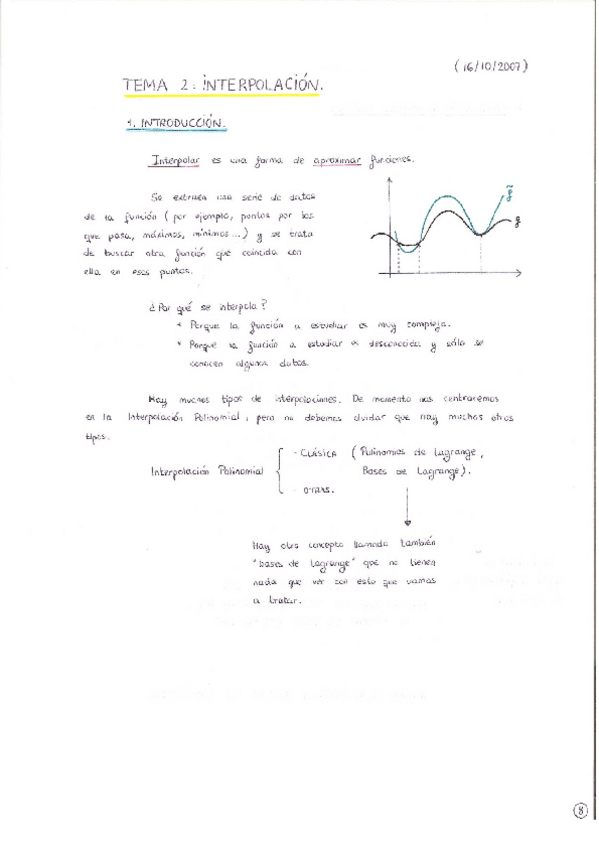 (16/10/2007)
TEMA 2: INTERPOLACIÓN.
1. INTRODUCCIÓN.
Interpolar es una forma de aproximar funciones.
Se extraen una serie de datos
de la función (por ejemplo, puntos por los
que pasa, máximos, mínimos...) y se trata
de buscar otra función que coincida con
ella en esos puntos.
f̃
f
¿Por qué se interpola?
* Porque la función a estudiar es muy compleja.
* Porque la función a estudiar es desconocida y sólo se
conocen algunos datos.
Hay muchos tipos de interpolaciones. De momento nos centraremos
en la Interpolación Polinomial, pero no debemos olvidar que hay muchos otros
tipos.
Interpolación Polinomial
- CLÁSICA (Polinomios de Lagrange,
Bases de Lagrange).
- OTRAS.
Hay otro concepto llamado también
"bases de Lagrange" que no tienen
nada que ver con esto que vamos
a tratar.
8